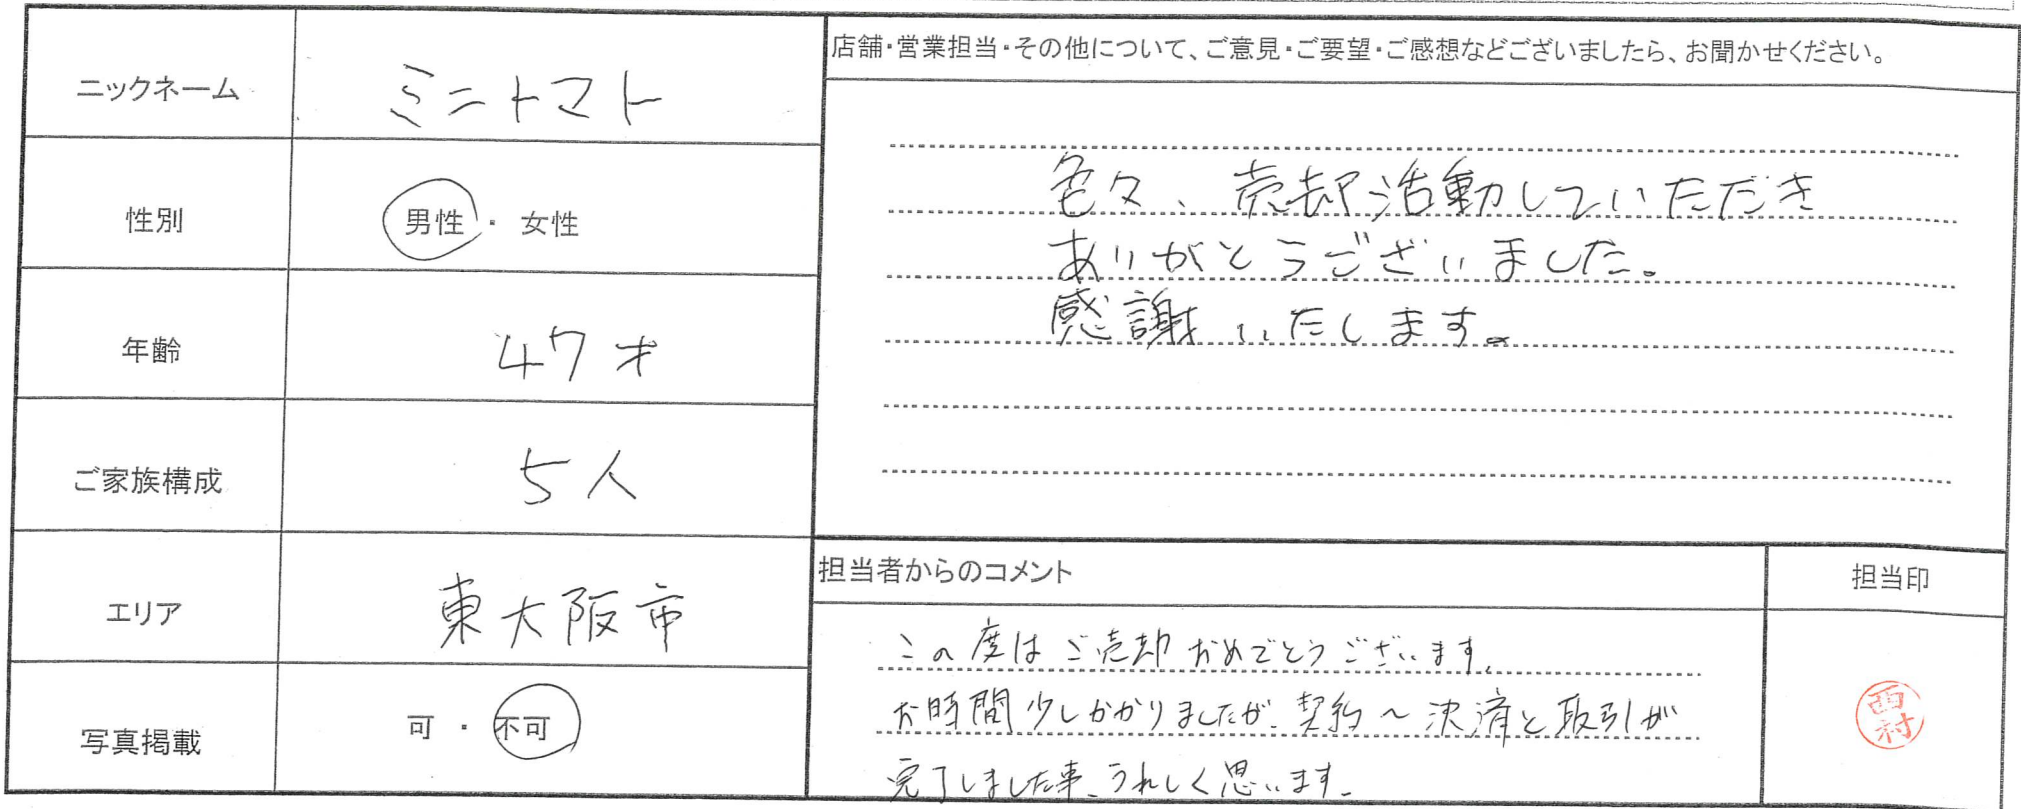 ニックネーム
ミニトマト
性別
男性 ・ 女性
年齢
47才
ご家族構成
5人
エリア
東大阪市
写真掲載
可 ・ 不可
店舗・営業担当・その他について、ご意見・ご要望・ご感想などございましたら、お聞かせください。
色々、売却活動していただき
ありがとうございました。
感謝いたします。
担当者からのコメント
この度はご売却おめでとうございます。
お時間少しかかりましたが、契約～決済と取引が
完了しました事、うれしく思います。
担当印
西村